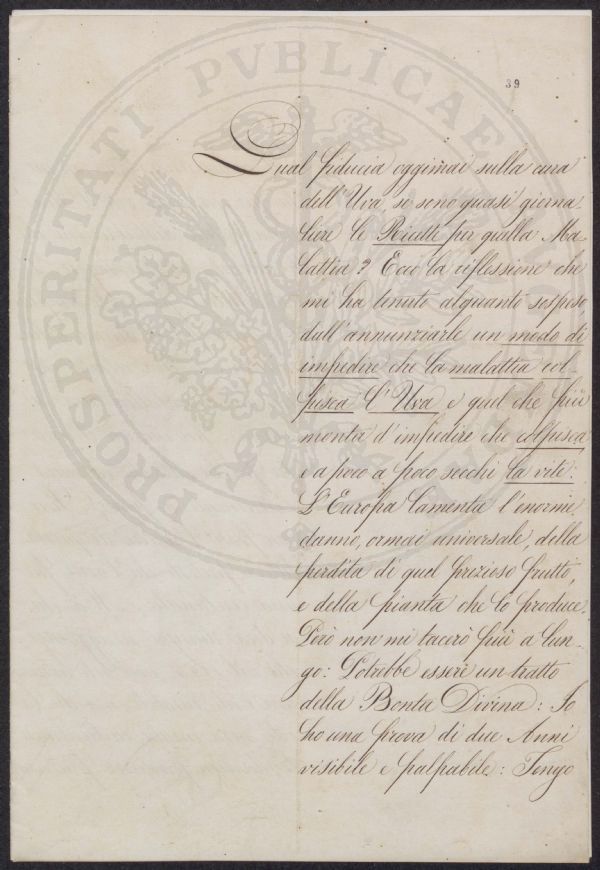 39
Qual fiducia oggimai sulla cura
dell'Uva, se sono quasi giorna-
liere le Ricette per quella Ma-
lattia? Ecco la riflessione che
mi ha tenuto alquanto sospeso,
dall'annunziarle un modo di
impedire che la malattia col-
pisca l'Uva e quel che più
monta d'impedire che colpisca
e a poco a poco secchi la vite:
L'Europa lamenta l'enorme
danno, ormai universale, della
perdita di quel prezioso frutto,
e della pianta che lo produce.
Però non mi tacerò più a lun-
go: Potrebbe essere un tratto
della Bontà Divina: Io
ho una prova di due Anni
visibile e palpabile: Tengo
PROSPERITATI PVBLICAE